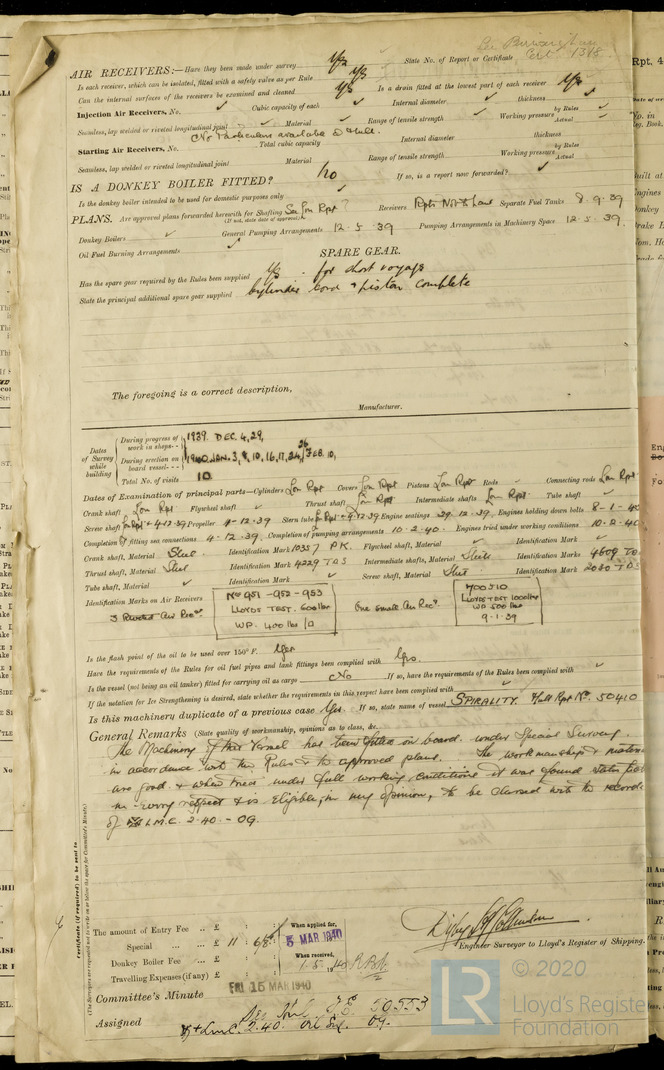 Cert 1348
AIR RECEIVERS:—Have they been made under survey Yes State No. of Report or Certificate
Is each receiver, which can be isolated, fitted with a safety valve as per Rule Yes
Can the internal surfaces of the receivers be examined and cleaned Yes Is a drain fitted at the lowest part of each receiver Yes
Injection Air Receivers, No. ✓ Cubic capacity of each ✓ Internal diameter ✓ thickness ✓
Seamless, lap welded or riveted longitudinal joint ✓ Material ✓ Range of tensile strength ✓ Working pressure by Rules ✓ Actual
Starting Air Receivers, No. No Particulars available Total cubic capacity Internal diameter thickness
Seamless, lap welded or riveted longitudinal joint Material Range of tensile strength Working pressure by Rules Actual
IS A DONKEY BOILER FITTED? No If so, is a report now forwarded? ✓
Is the donkey boiler intended to be used for domestic purposes only ✓
PLANS. Are approved plans forwarded herewith for Shafting See Lon Rpt? Receivers Separate Fuel Tanks 8. 9. 39
(If not, state date of approval)
Donkey Boilers ✓ General Pumping Arrangements 12. 5. 39 Pumping Arrangements in Machinery Space 12. 5. 39.
Oil Fuel Burning Arrangements ✓
SPARE GEAR.
Has the spare gear required by the Rules been supplied Yes - for short voyage
State the principal additional spare gear supplied Cylinder cover & piston complete
The foregoing is a correct description,
Manufacturer.
Dates of Survey while building
During progress of work in shops - - 1939. DEC. 4, 29,
During erection on board vessel - - - 1940. JAN. 3, 8, 10, 16, 17, 24, 26 FEB. 10,
Total No. of visits 10
Dates of Examination of principal parts—Cylinders Lon Rpt Covers Lon Rpt Pistons Lon Rpt Rods ✓ Connecting rods Lon Rpt
Crank shaft Lon Rpt Flywheel shaft ✓ Thrust shaft Lon Rpt Intermediate shafts Lon Rpt Tube shaft ✓
Screw shaft Lon Rpt + 4-12-39 Propeller 4-12-39 Stern tube Lon Rpt + 4-12-39 Engine seatings 29. 12. 39. Engines holding down bolts 8-1-40
Completion of fitting sea connections 4. 12. 39. Completion of pumping arrangements 10. 2. 40. Engines tried under working conditions 10. 2. 40
Crank shaft, Material Steel Identification Mark 10357 P.K. Flywheel shaft, Material ✓ Identification Mark ✓
Thrust shaft, Material Steel Identification Mark 4229 TDS Intermediate shafts, Material Steel Identification Marks 4609 TD
Tube shaft, Material ✓ Identification Mark ✓ Screw shaft, Material Steel Identification Mark 2060 TDS
Identification Marks on Air Receivers
3 Riveted Air Recrs. Nos 951 -952 -953
LLOYDS TEST. 600 lbs
WP. 400 lbs /□
One small Air Recr.
LLOYDS TEST 1000 lbs
WP 500 lbs
9-1-39
Is the flash point of the oil to be used over 150° F. Yes
Have the requirements of the Rules for oil fuel pipes and tank fittings been complied with Yes.
Is the vessel (not being an oil tanker) fitted for carrying oil as cargo No If so, have the requirements of the Rules been complied with ✓
If the notation for Ice Strengthening is desired, state whether the requirements in this respect have been complied with ✓
Is this machinery duplicate of a previous case Yes. If so, state name of vessel SPIRALITY. Hull Rpt No. 50410
General Remarks (State quality of workmanship, opinions as to class, &c.
The Machinery of this Vessel has been fitted on board under Special Survey
in accordance with the Rules & to approved plans. The workmanship & materials
are good. & when tried under full working conditions it was found satisfactory
in every respect & is eligible, in my opinion, to be classed with the record
of L.M.C. 2.40. - OG.
Certificate (if required) to be sent to
(The Surveyors are requested not to write on or below the space for Committee's Minute.)
The amount of Entry Fee .. £ : :
Special ... ... £ 11 :
Donkey Boiler Fee ... £ : :
Travelling Expenses (if any) £ : :
When applied for,
5 MAR 1940
When received,
Engineer Surveyor to Lloyd's Register of Shipping.
Committee's Minute FRI 15 MAR 1940
Assigned
+ LMC. 2.40. Oil Eng. OG.
Rpt. 4
LR
© 2020
Lloyd's Register
Foundation